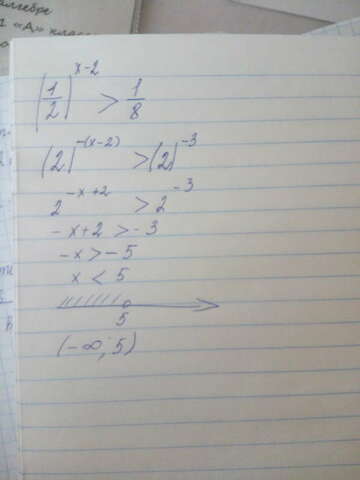 алгебре
1 «А» клас
(1/2)^(x-2) > 1/8
(2)^(-(x-2)) > (2)^(-3)
2^(-x+2) > 2^(-3)
-x+2 > -3
-x > -5
x < 5
5
(-∞; 5)